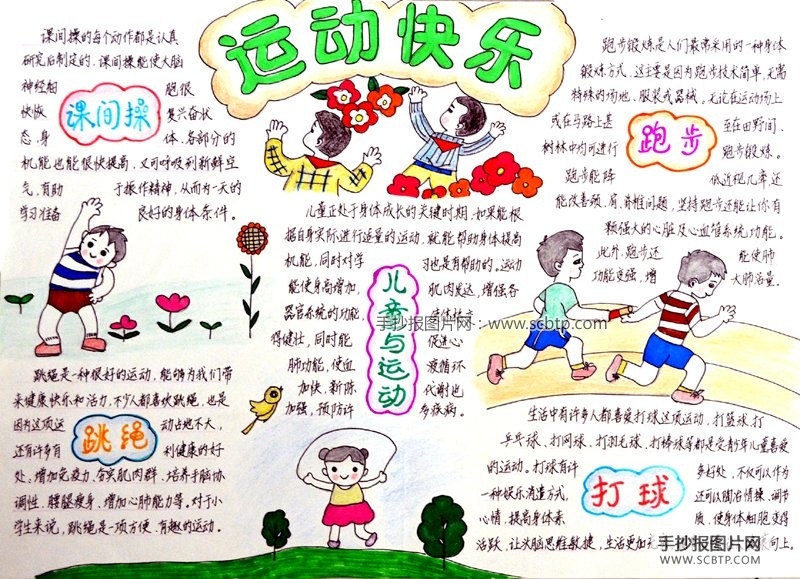 运动快乐
课间操的每个动作都是认真
研究后制定的。课间操能使大脑
神经细 胞很
快恢 复兴奋状
态,身 体各部分的
机能也能很快提高,又可呼吸到新鲜空
气,有助 于振作精神,从而为一天的
学习准备 良好的身体条件。
课间操
跑步锻炼是人们最常采用的一种身体
锻炼方式,这主要是因为跑步技术简单,无需
特殊的场地、服装或器械。无论在运动场上
或在马路上甚 至在田野间、
树林中均可进行 跑步锻炼。
跑步能降 低近视几率,还
能改善颈、肩、脊椎问题,坚持跑步还能让你有
颗强大的心脏及心血管系统功能。
此外,跑步还 能使肺
功能变强,增 大肺活量。
跑步
儿童正处于身体成长的关键时期,如果能根
据自身实际进行适量的运动,就能帮助身体提高
机能,同时对学 习也是有帮助的。运动
能使身高增加, 肌肉发达,增强各
器官系统的功能,
得健壮,同时能 促进心
肺功能,使血 液循环
加快,新陈 代谢也
加强,预防许 多疾病。
儿童与运动
手抄报图片网:www.scbtp.com
跳绳是一种很好的运动,能够为我们带
来健康快乐和活力,不少人都喜欢跳绳,也是
因为这项运 动占地不大,
还有许多有 利健康的好
处,增加免疫力、夯实肌肉群、培养手脑协
调性、腰腿瘦身、增加心肺能力等。对于小
学生来说,跳绳是一项方便、有趣的运动。
跳绳
生活中有许多人都喜爱打球这项运动,打篮球、打
乒乓球、打网球、打羽毛球、打棒球等都是受青少年儿童喜爱
的运动。打球有许 多好处,不仅可以作为
一种娱乐消遣方式, 还可以陶冶情操、调节
心情、提高身体素 质、使身体细胞变得
活跃,让大脑思维敏捷,生活更加充 向上。
打球
手抄报图片网
WWW.SCBTP.COM